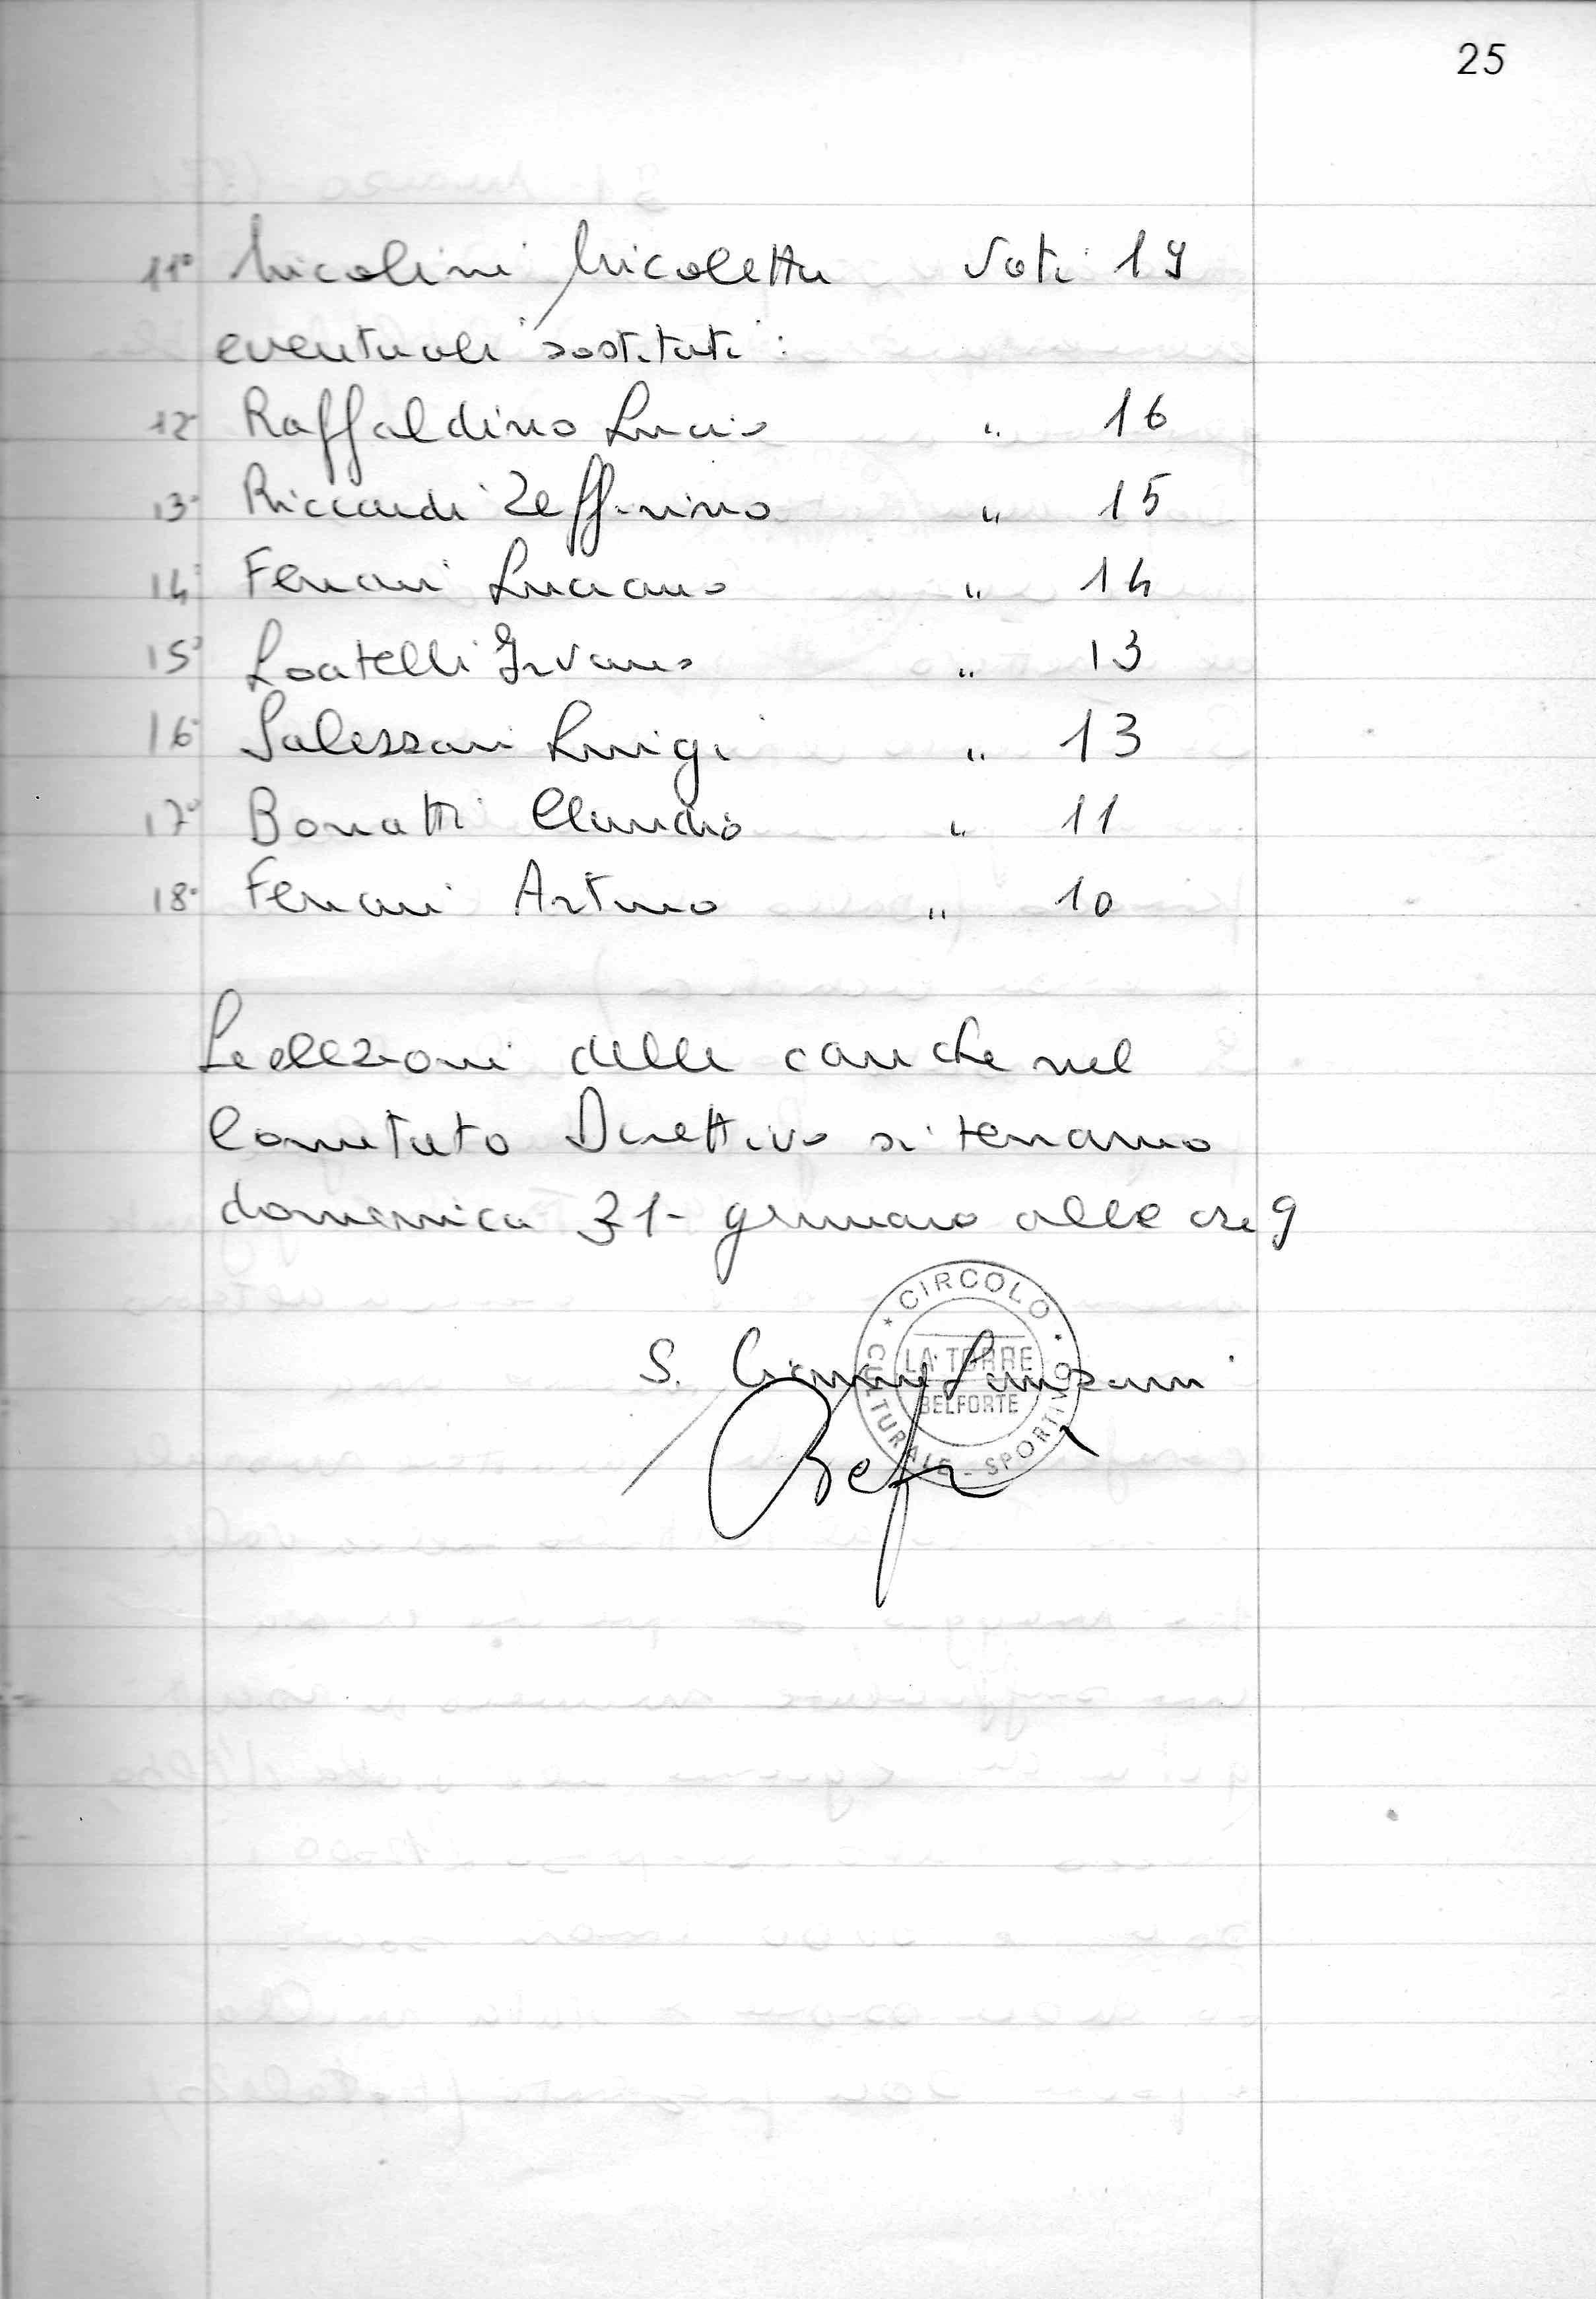 25
11° Nicolini Nicoletta Voti 19
eventuali sostituti:
12° Raffaldino Lucio " 16
13° Riccardi Zeffirino " 15
14° Ferrari Luciano " 14
15° Loatelli Irvano " 13
16° Salessari Luigi " 13
17° Bonatti Claudio " 11
18° Ferrari Arturo " 10
Le elezioni delle cariche nel
Comitato Direttivo si terranno
domenica 31- gennaio alle ore 9
S. Gianni
CIRCOLO
LA TORRE
BELFORTE
CULTURALE - SPORTIVO